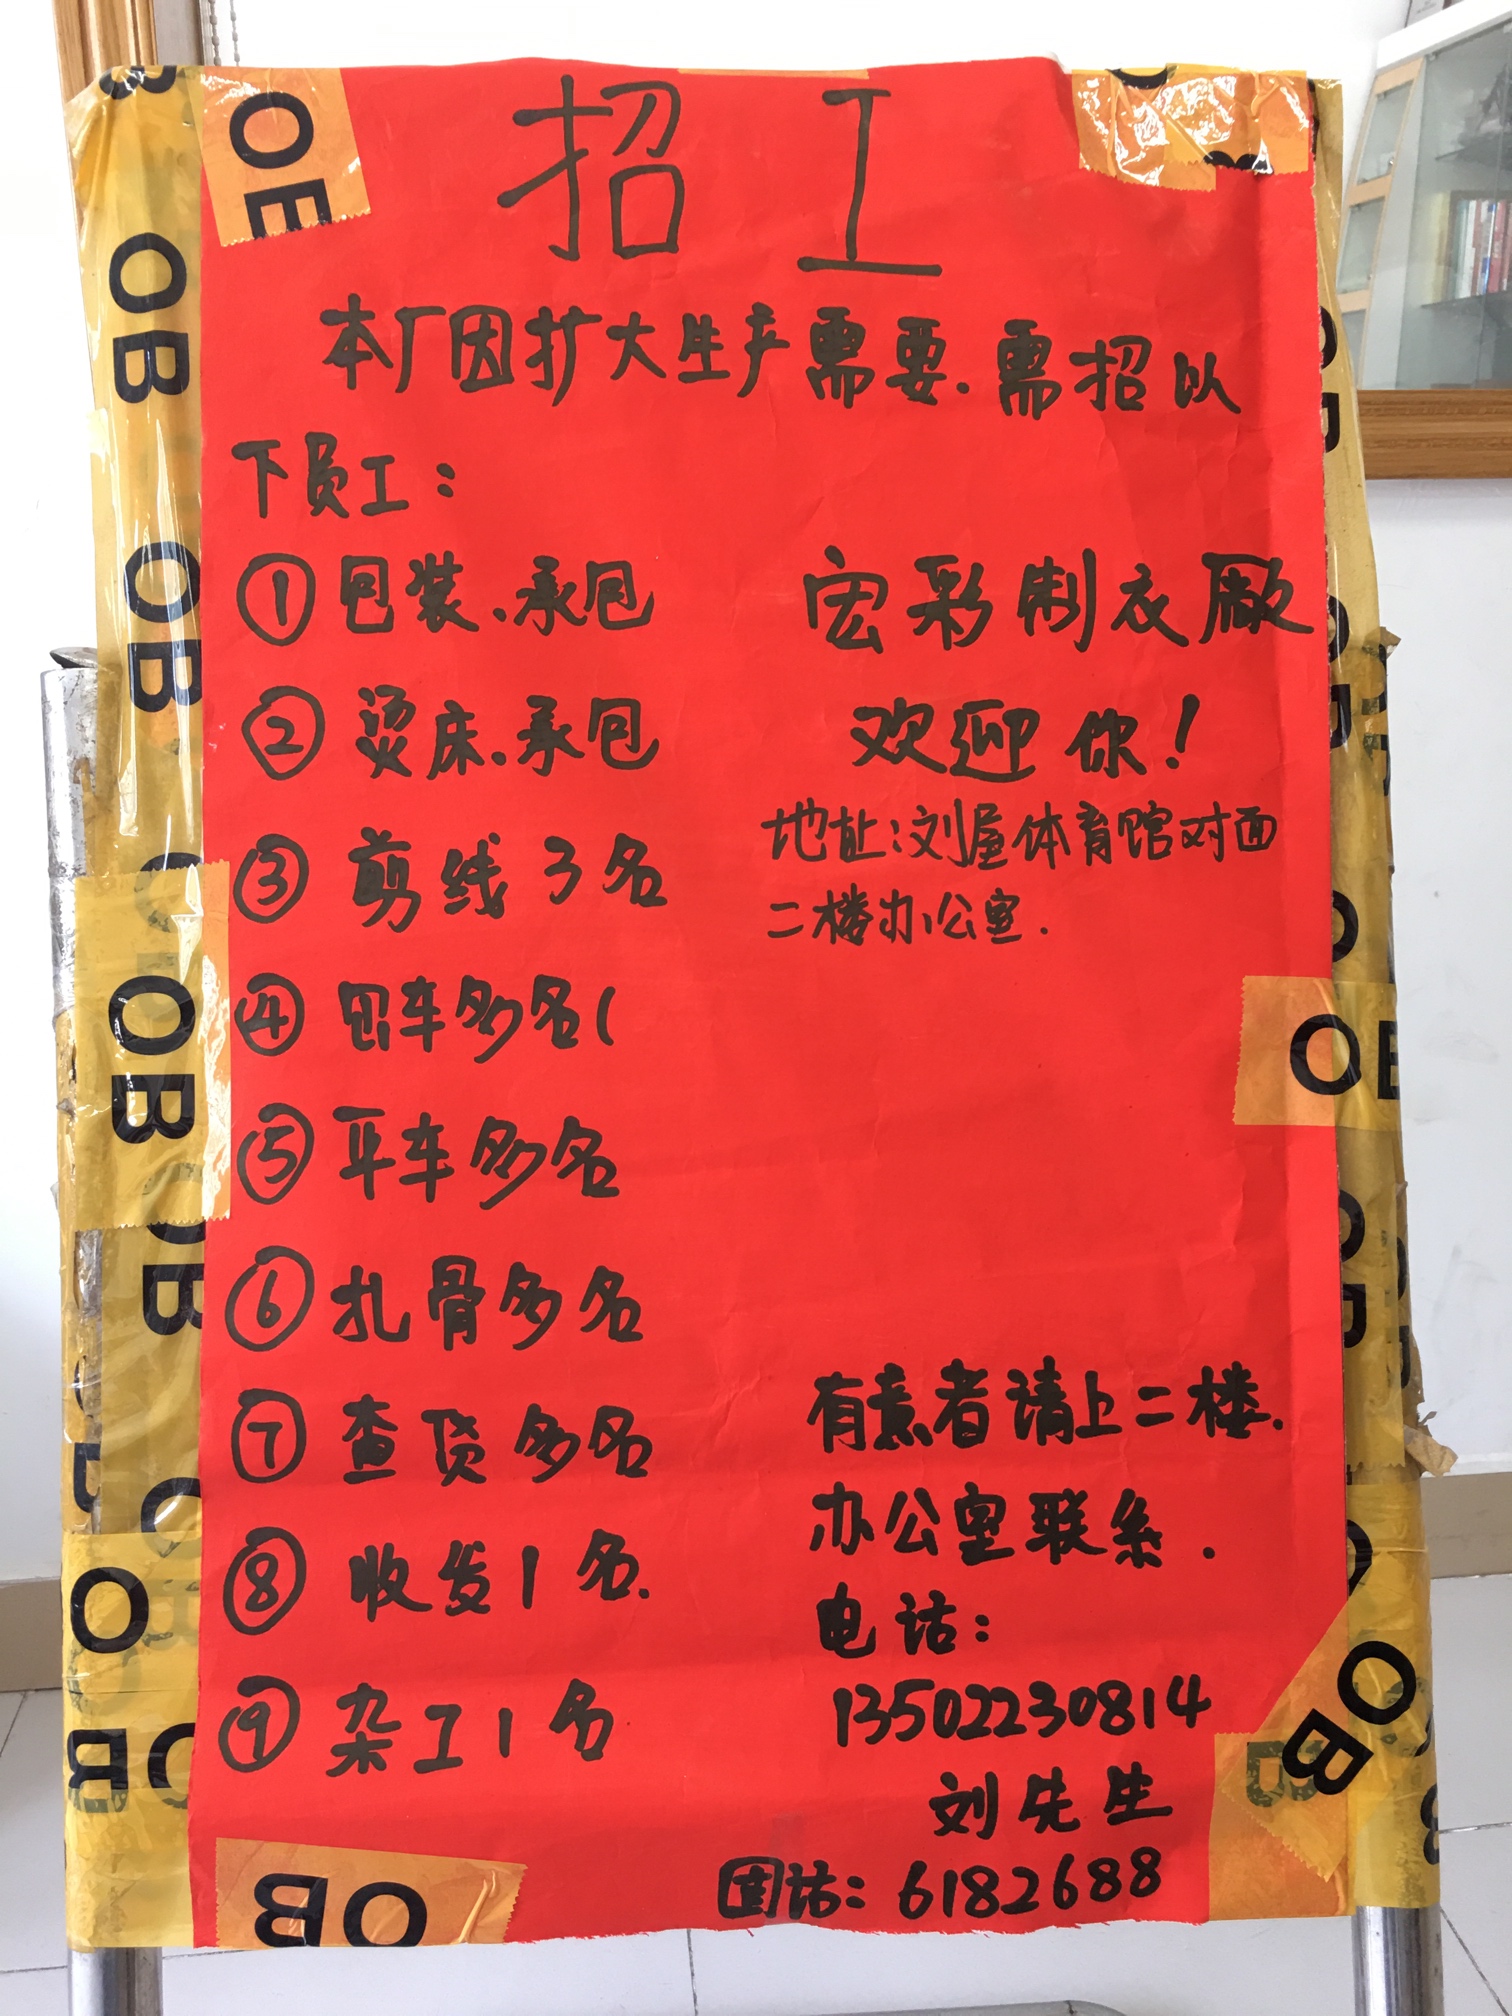 招工
本厂因扩大生产需要.需招以
下员工:
①包装.承包
②烫床.承包
③剪线3名
④ 车多名(
⑤平车多名
⑥扎骨多名
⑦查货多名
⑧收发1名.
⑨杂工1名
宏彩制衣厰
欢迎你!
地址:刘屋体育馆对面
二楼办公室.
有意者请上二楼.
办公室联系.
电话:
13502230814
刘先生
固话:6182688
OB
OB
OB
OB
OB
OB
OB